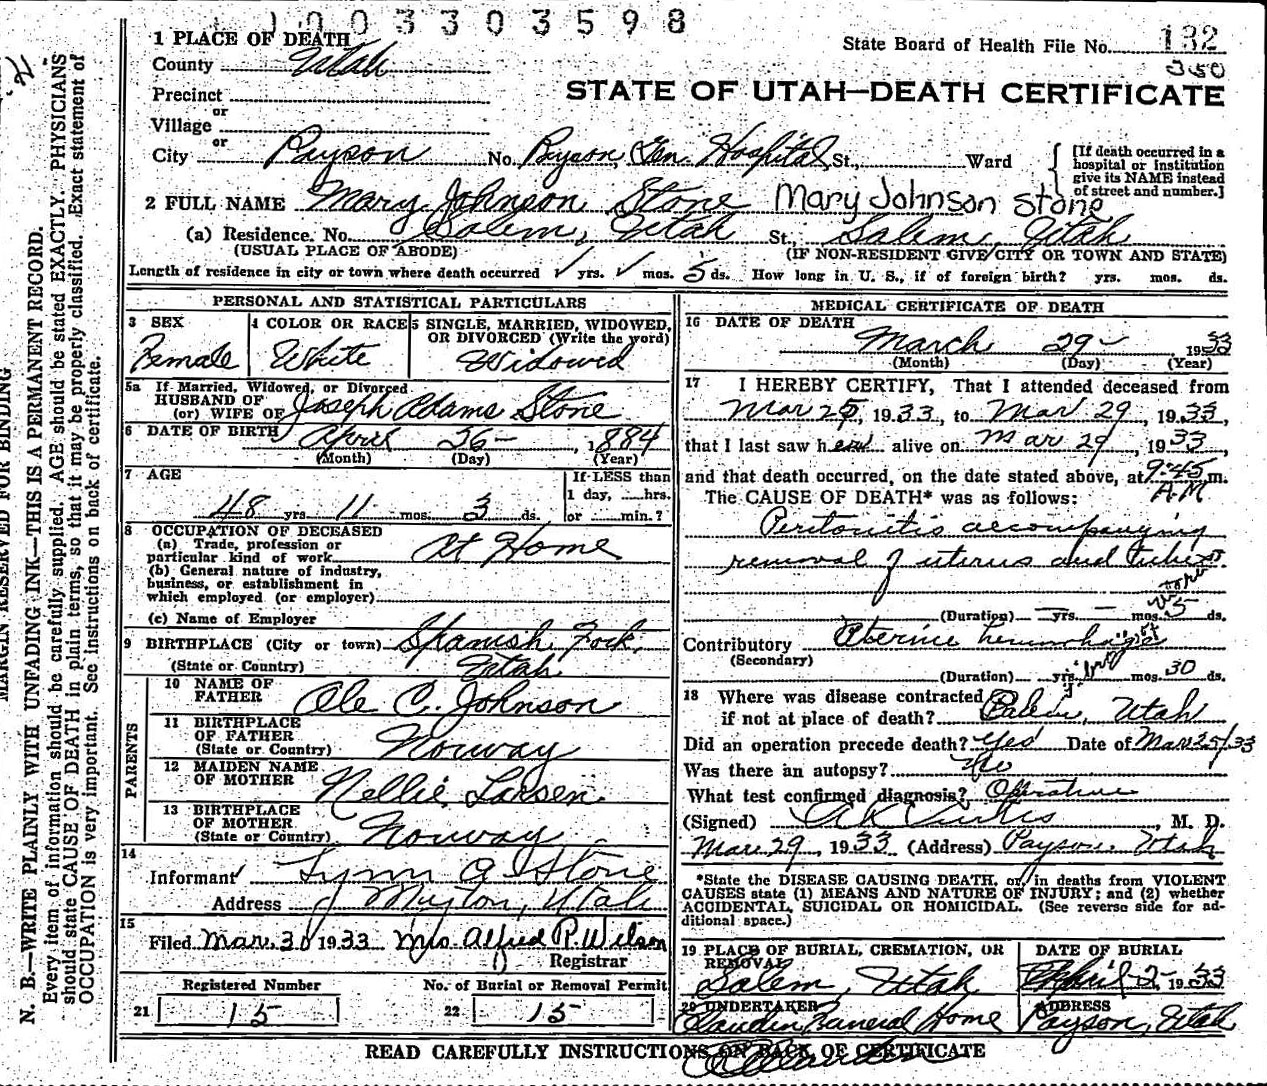 1003303598
1 PLACE OF DEATH
County Utah
State Board of Health File No. 132
350
Precinct
or
Village
or
STATE OF UTAH—DEATH CERTIFICATE
City Payson No. Payson Gen. Hospital St., Ward
[If death occurred in a
hospital or institution
give its NAME instead
of street and number.]
2 FULL NAME Mary Johnson Stone Mary Johnson Stone
(a) Residence. No. Salem, Utah St., Salem, Utah
(USUAL PLACE OF ABODE) (IF NON-RESIDENT GIVE CITY OR TOWN AND STATE)
Length of residence in city or town where death occurred ✓ yrs. ✓ mos. 5 ds. How long in U. S., if of foreign birth? yrs. mos. ds.
PERSONAL AND STATISTICAL PARTICULARS
3 SEX
Female
4 COLOR OR RACE
White
5 SINGLE, MARRIED, WIDOWED,
OR DIVORCED (Write the word)
Widowed
5a If Married, Widowed, or Divorced
HUSBAND OF
(or) WIFE OF Joseph Adams Stone
6 DATE OF BIRTH April 26- , 1884
(Month) (Day) (Year)
7 AGE
48 yrs. 11 mos. 3 ds.
If LESS than
1 day, ......hrs.
or ......min.?
8 OCCUPATION OF DECEASED
(a) Trade, profession or
particular kind of work At Home
(b) General nature of industry,
business, or establishment in
which employed (or employer)
(c) Name of Employer
9 BIRTHPLACE (City or town) Spanish Fork,
(State or Country) Utah
PARENTS
10 NAME OF
FATHER Ole C. Johnson
11 BIRTHPLACE
OF FATHER
(State or Country) Norway
12 MAIDEN NAME
OF MOTHER Nellie Larsen
13 BIRTHPLACE
OF MOTHER
(State or Country) Norway
14
Informant Lynn A Stone
Address Myton, Utah
15
Filed Mar. 30 1933 Mrs. Alfred P. Wilson
Registrar
Registered Number No. of Burial or Removal Permit
21 15 22 15
MEDICAL CERTIFICATE OF DEATH
16 DATE OF DEATH
March 29- 1933
(Month) (Day) (Year)
17 I HEREBY CERTIFY, That I attended deceased from
Mar 25, 1933, to Mar 29, 1933,
that I last saw her alive on Mar 29, 1933,
and that death occurred, on the date stated above, at 9:45 m.
AM
The CAUSE OF DEATH* was as follows:
Peritonitis accompanying
removal of uterus and tubes
(Duration) — yrs. — mos. 5 ds.
Contributory Uterine hemorrhage
(Secondary)
(Duration) yrs. mos. 30 ds.
18 Where was disease contracted
if not at place of death? Utah
Did an operation precede death? Yes Date of Mar 25/33
Was there an autopsy? No
What test confirmed diagnosis? Operative
(Signed) A K Curtis, M. D.
Mar. 29, 1933 (Address) Payson, Utah
*State the DISEASE CAUSING DEATH, or, in deaths from VIOLENT
CAUSES state (1) MEANS AND NATURE OF INJURY; and (2) whether
ACCIDENTAL, SUICIDAL OR HOMICIDAL. (See reverse side for ad-
ditional space.)
19 PLACE OF BURIAL, CREMATION, OR
REMOVAL
Salem, Utah
DATE OF BURIAL
April 2- 1933
20 UNDERTAKER
Funeral Home
ADDRESS
Payson, Utah
READ CAREFULLY INSTRUCTIONS ON BACK OF CERTIFICATE
MARGIN RESERVED FOR BINDING
N. B.—WRITE PLAINLY WITH UNFADING INK—THIS IS A PERMANENT RECORD.
Every item of information should be carefully supplied. AGE should be stated EXACTLY. PHYSICIANS
should state CAUSE OF DEATH in plain terms, so that it may be properly classified. Exact statement of
OCCUPATION is very important. See instructions on back of certificate.